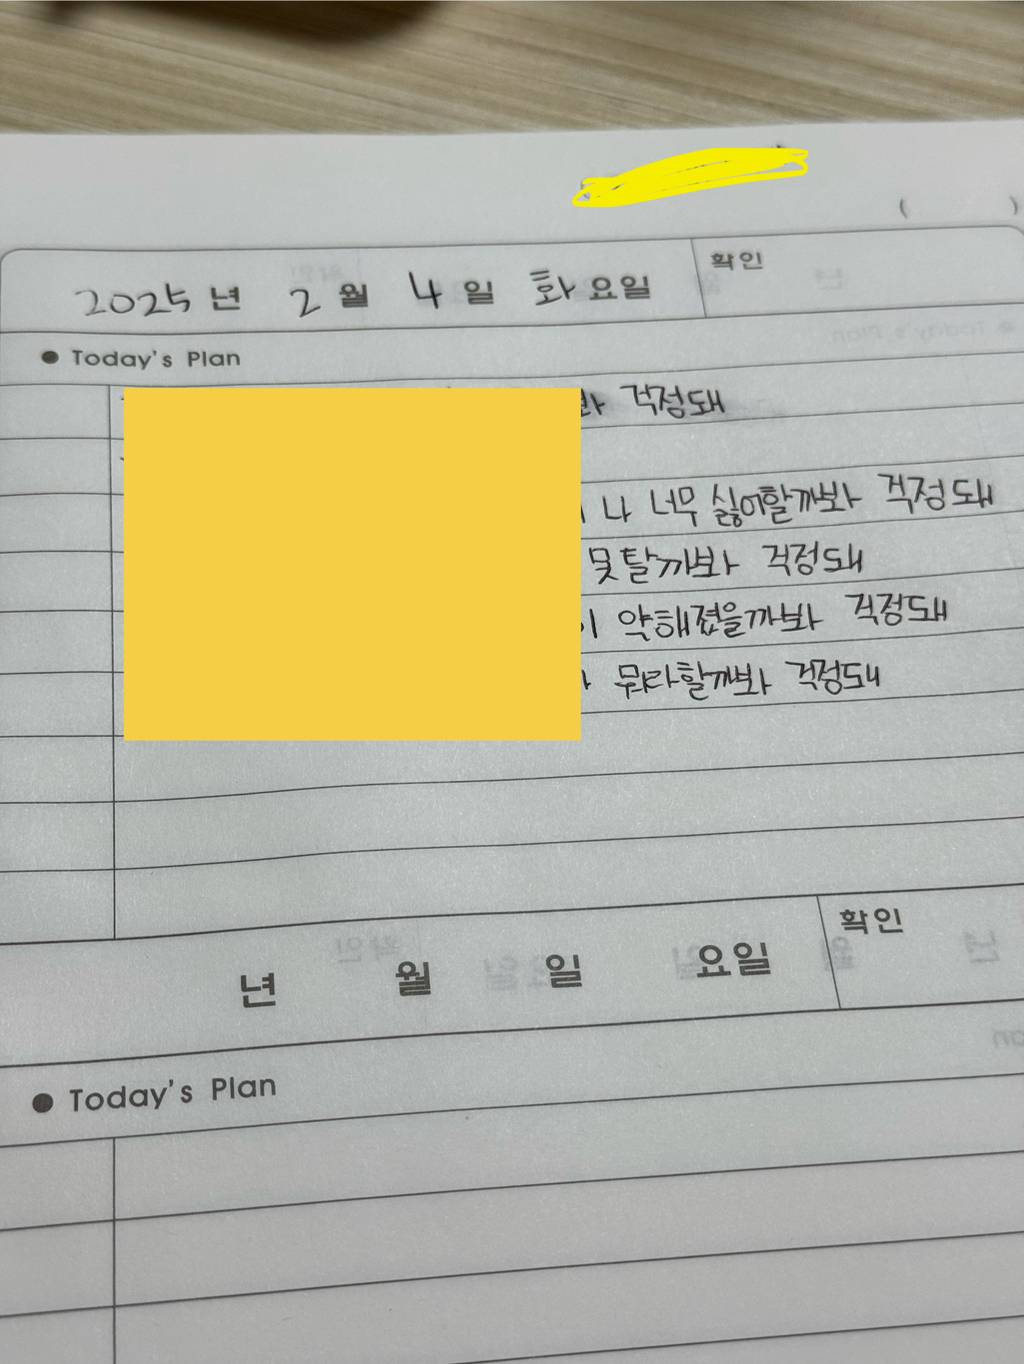 (          )
2025 년 2 월 4 일 화 요일 확인
● Today's Plan
걱정돼
나 너무 싫어할까봐 걱정돼
못탈까봐 걱정돼
약해졌을까봐 걱정돼
뭐라할까봐 걱정돼
년 월 일 요일 확인
● Today's Plan